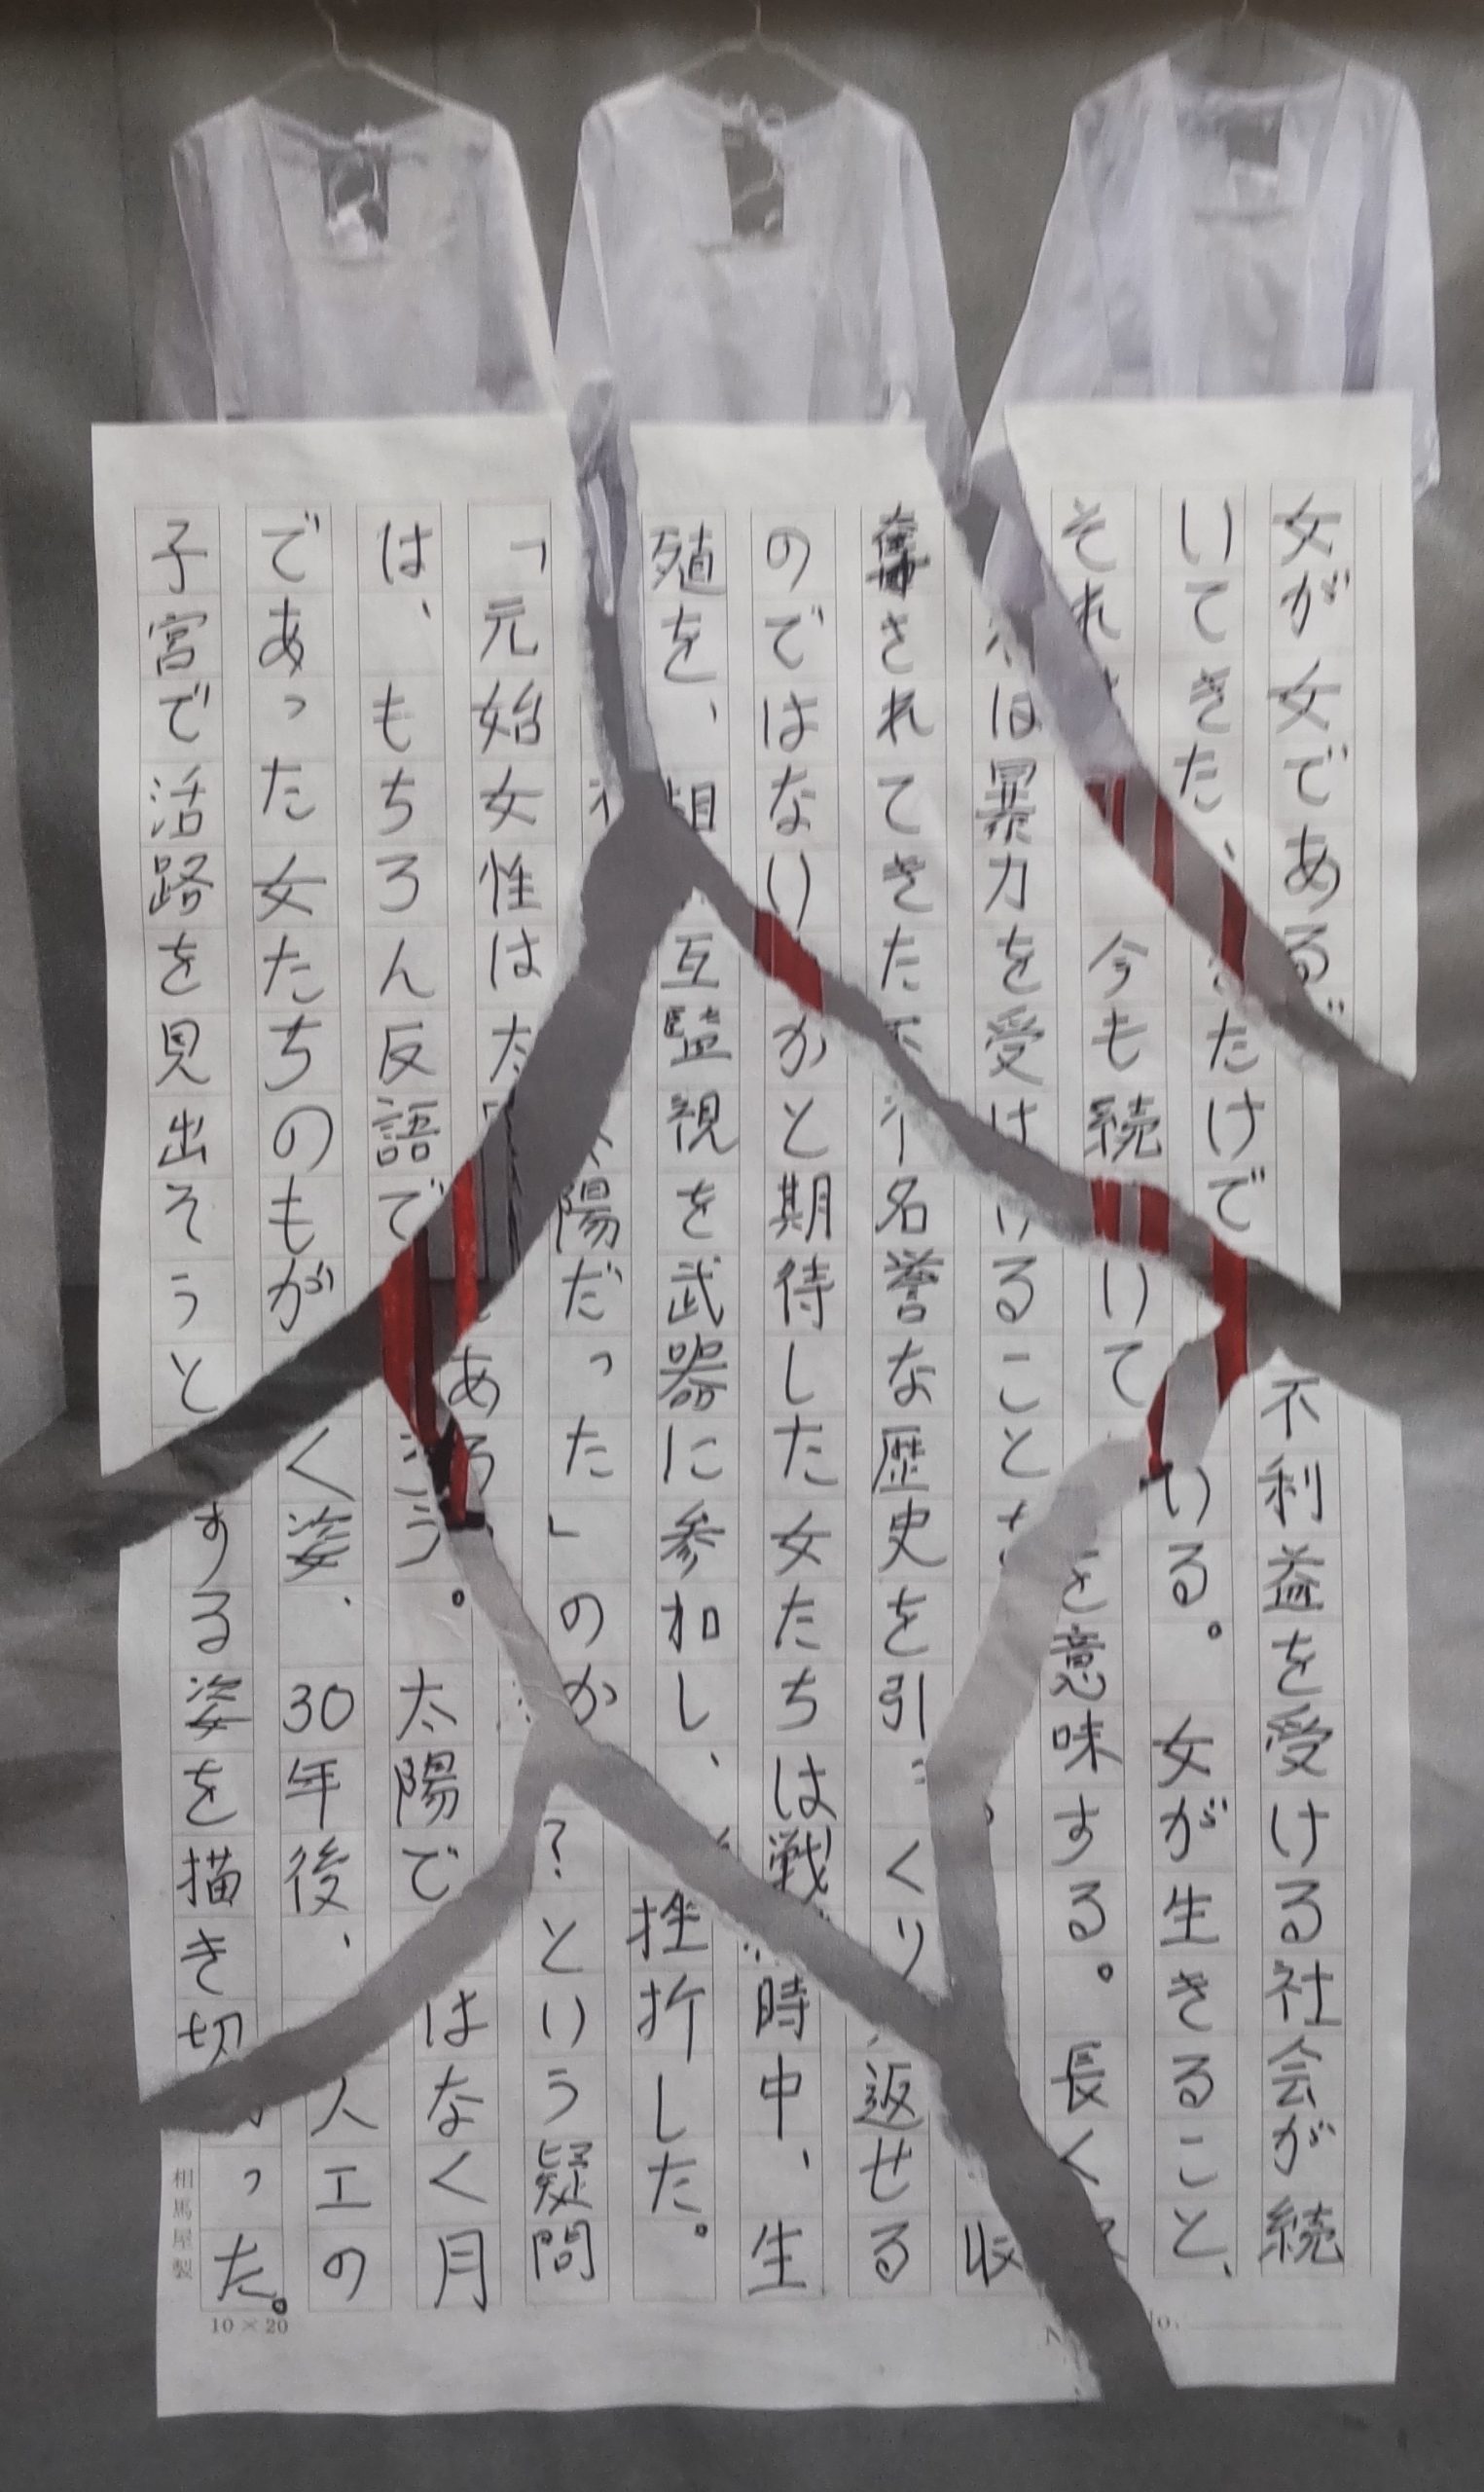 女が女であるだけで不利益を受ける社会が続
いてきた、今も続いている。女が生きること、
それは暴力を受けることを意味する。長く収
奪されてきた不名誉な歴史を引っくり返せる
のではないかと期待した女たちは戦時中、生
殖を、相互監視を武器に参加し、挫折した。
「元始女性は太陽だった」のか?という疑問
は、もちろん反語であろう。太陽ではなく月
であった女たちのもがく姿、30年後、人工の
子宮で活路を見出そうとする姿を描き切った。
相馬屋製
10×20
No.